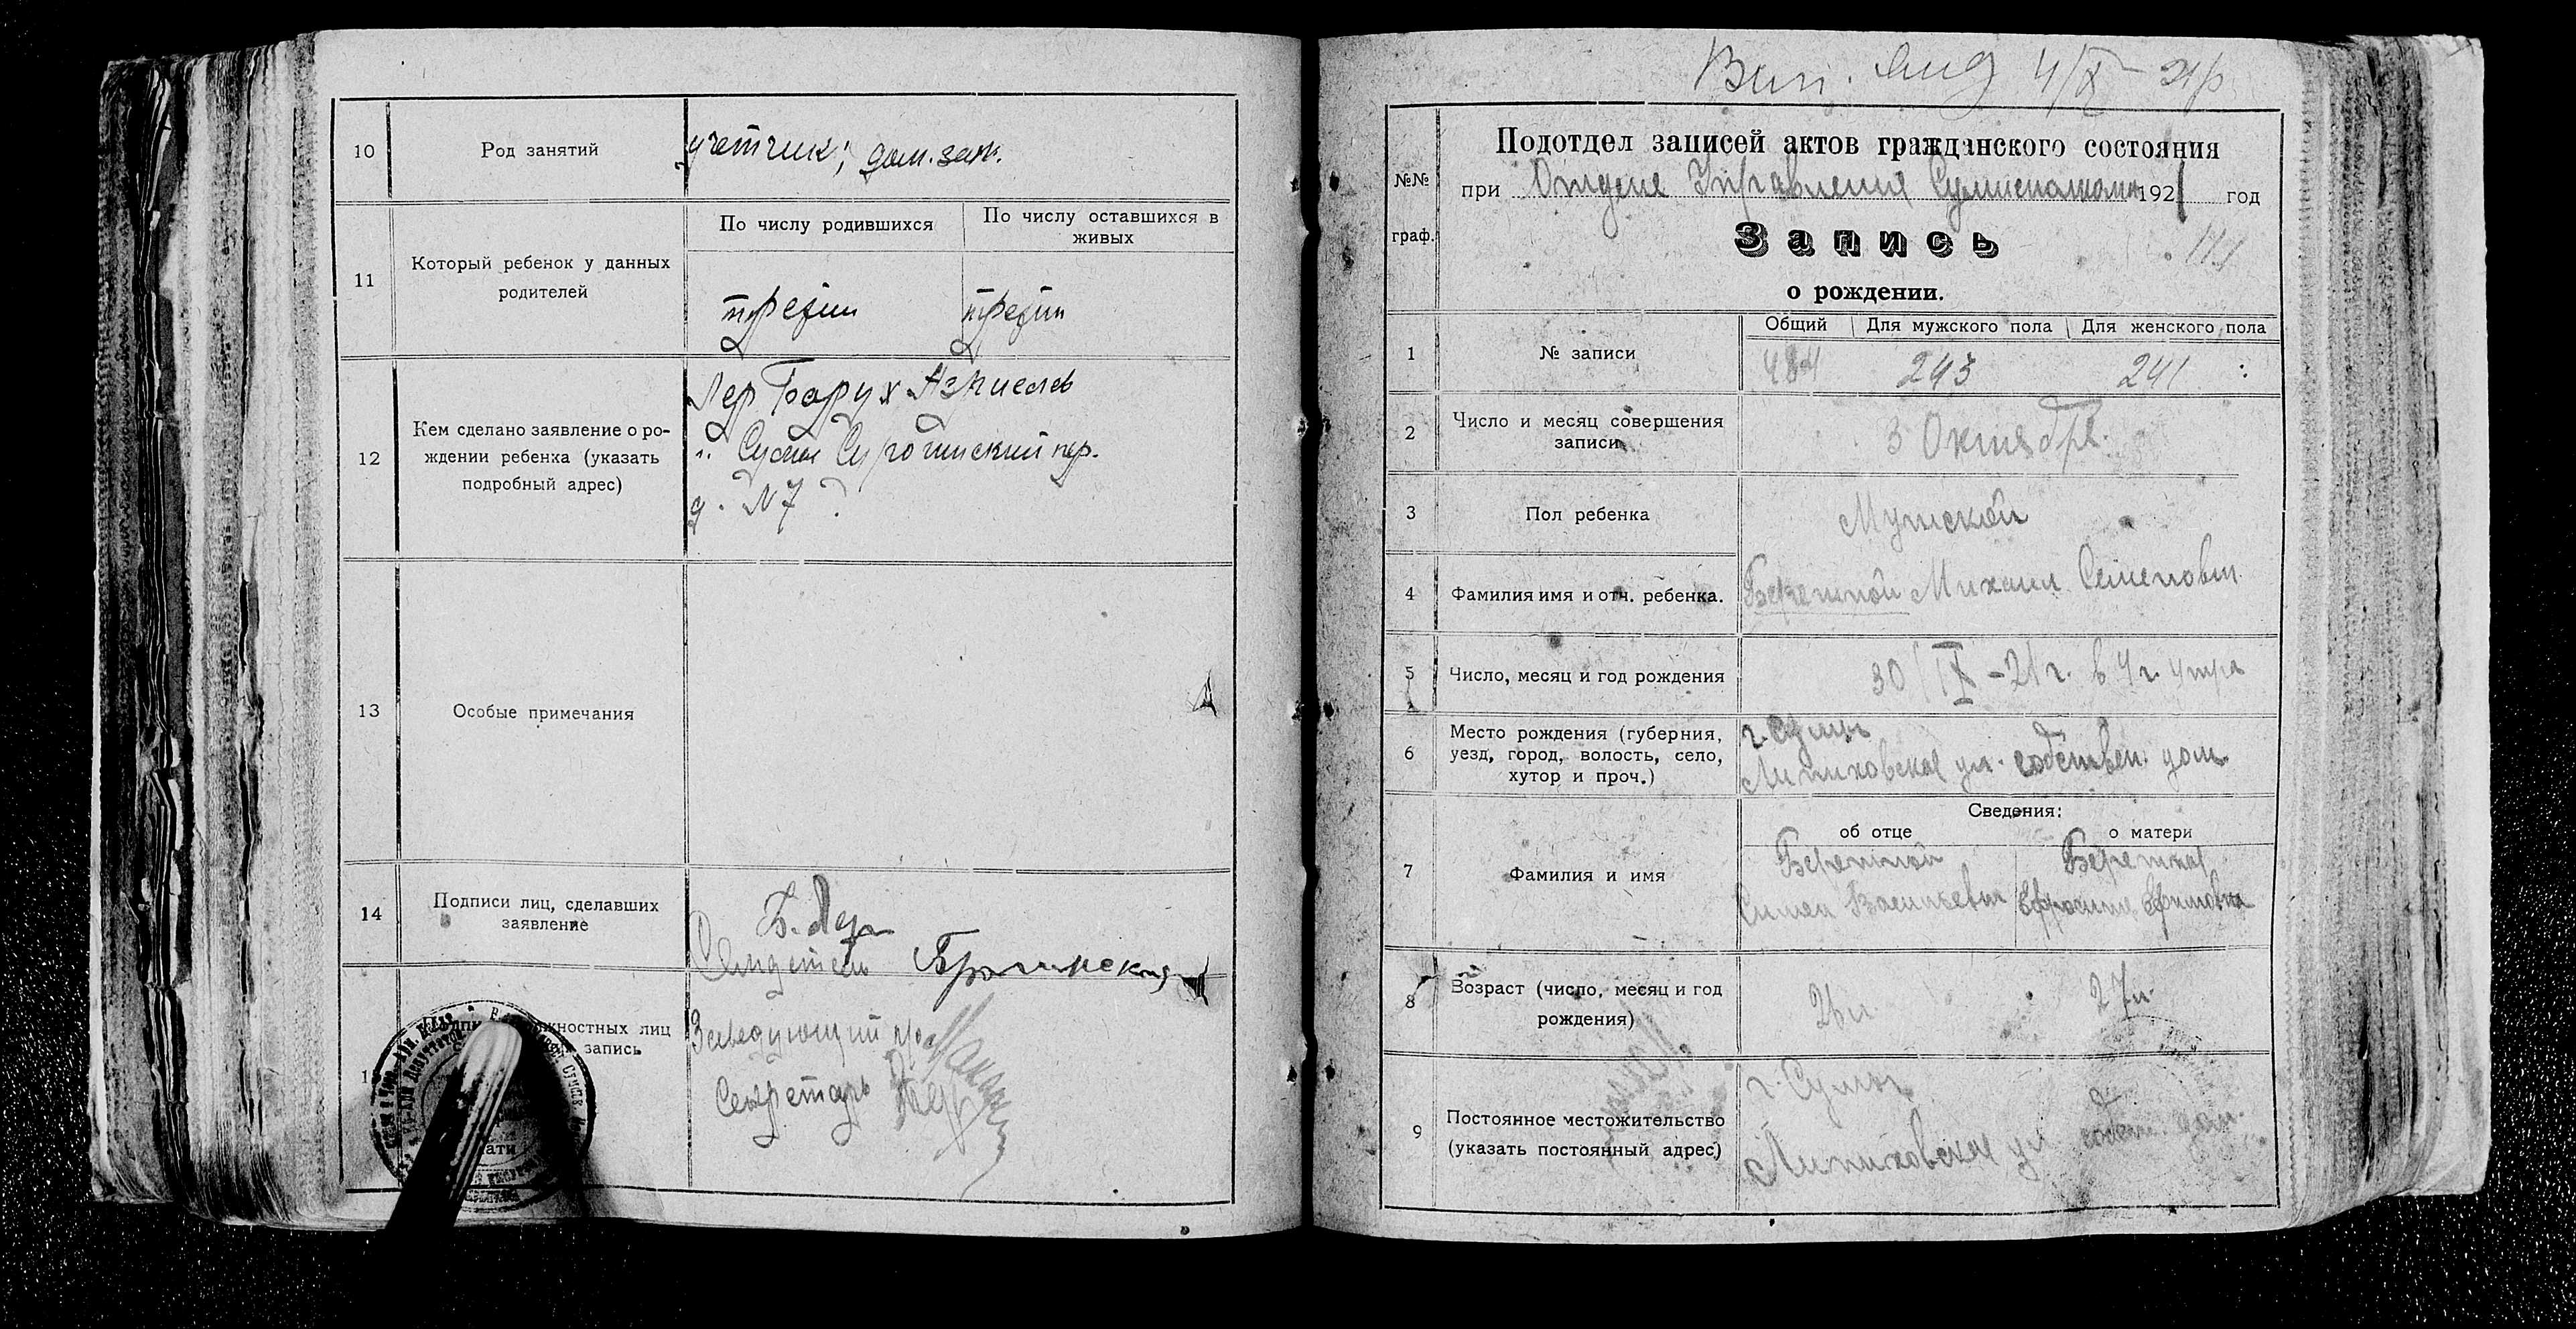 10 Род занятий учетчик; дом. зан.
11 Который ребенок у данных
родителей
По числу родившихся
По числу оставшихся в
живых
третий третий
12 Кем сделано заявление о ро-
ждении ребенка (указать
подробный адрес)
Лер Барух Азриелев
г. Сумы Суготинский пер.
д. № 7
13 Особые примечания
14 Подписи лиц, сделавших
заявление
Б. Лер
Свидетель Брагинский
лиц
запись
Заведующий
Секретарь
4/X - 21 р
№№
граф.
Подотдел записей актов гражданского состояния
при Отделе Управления Сумисполкома 1921 год
Запись
о рождении.
1 № записи
Общий Для мужского пола Для женского пола
484 243 241
2 Число и месяц совершения
записи
3 Октября
3 Пол ребенка Мужской
4 Фамилия имя и отч. ребенка. Бережной Михаил Семенович
5 Число, месяц и год рождения 30/IX - 21 г. в 4 ч. утра
6 Место рождения (губерния,
уезд, город, волость, село,
хутор и проч.)
г. Сумы
ул. собствен. дом
Сведения:
об отце о матери
7 Фамилия и имя
Бережной Бережная
Васильевич Ефросиния Ефимовна
8 Возраст (число, месяц и год
рождения)
26 л. 27 л.
9 Постоянное местожительство
(указать постоянный адрес)
г. Сумы
ул. собств. дом.